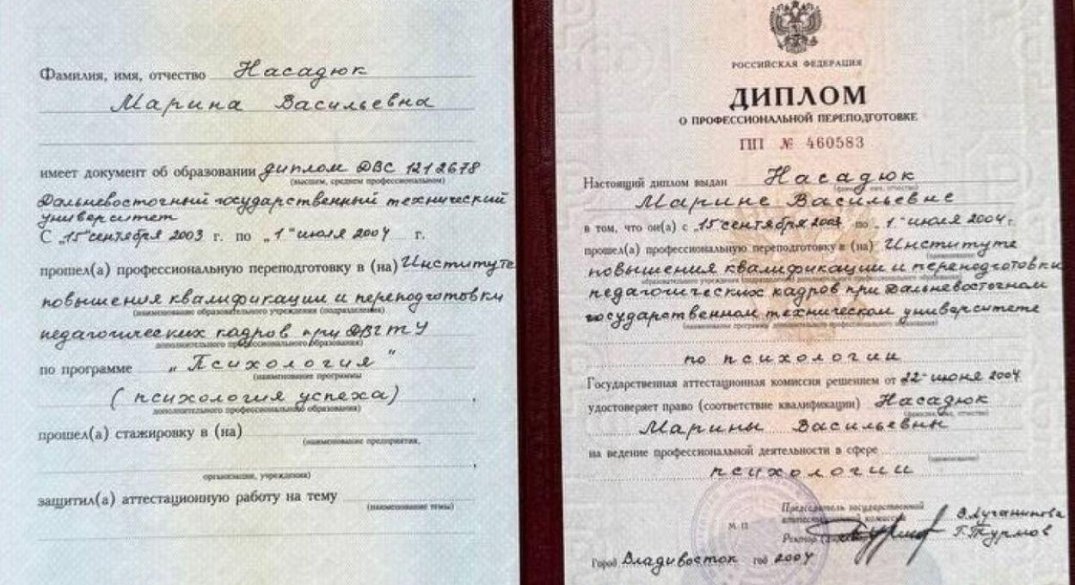 Фамилия, имя, отчество Насадюк
Марина Васильевна
имеет документ об образовании диплом ДВС 1212678
(высшем, среднем профессиональном)
Дальневосточный государственный технический
университет
С „15" сентября 2003 г. по „1" июля 2004 г.
прошел(а) профессиональную переподготовку в (на) Институте
повышения квалификации и переподготовки
(наименование образовательного учреждения (подразделения)
педагогических кадров при ДВГТУ
дополнительного профессионального образования)
по программе „Психология"
(наименование программы
(психология успеха),
дополнительного профессионального образования)
прошел(а) стажировку в (на)
(наименование предприятия,
организации, учреждения)
защитил(а) аттестационную работу на тему
(наименование темы)
РОССИЙСКАЯ ФЕДЕРАЦИЯ
ДИПЛОМ
О ПРОФЕССИОНАЛЬНОЙ ПЕРЕПОДГОТОВКЕ
ПП № 460583
Настоящий диплом выдан Насадюк
(фамилия, имя, отчество)
Марине Васильевне
в том, что он(а) с „15 сентября 2003 по „1" июля 2004 г.
прошел(а) профессиональную переподготовку в (на) Институте
(наименование
повышения квалификации и переподготовки
образовательного учреждения (подразделения) дополнительного профессионального образования)
педагогических кадров при Дальневосточном
государственном техническом университете
(наименование программы дополнительного профессионального образования)
по психологии
Государственная аттестационная комиссия решением от 22 июня 2004
удостоверяет право (соответствие квалификации) Насадюк
(фамилия, имя, отчество)
Марины Васильевны
на ведение профессиональной деятельности в сфере
(наименование)
психологии
Председатель государственной
аттестационной комиссии
Э.Лучанинова
М. П.
Ректор
Г.Турмов
Город Владивосток год 2004